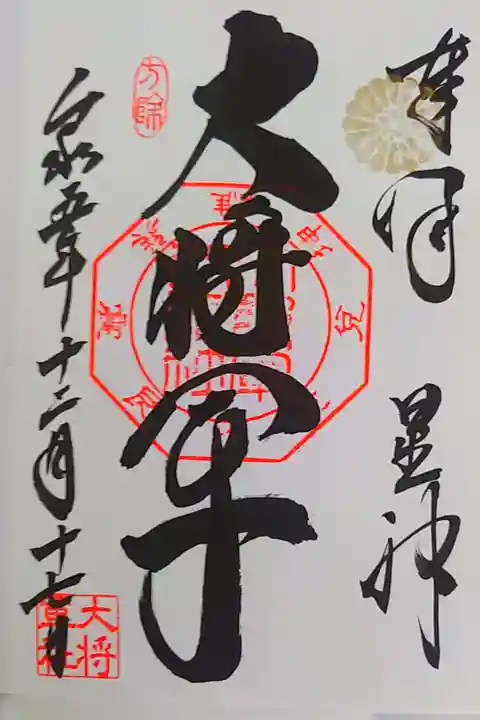 奉拝 星神
大将軍
方除
令和五年十二月十七日
大将
軍社